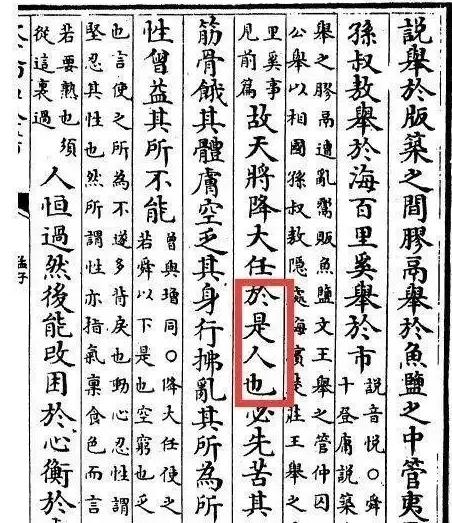 說舉於版築之間膠鬲舉於魚鹽之中管夷
孫叔敖舉於海百里奚舉於市
說音悅○舜
十登庸說築
舉之膠鬲遭亂鬻販魚鹽文王舉之管仲囚
公舉以相國孫叔敖隱處海濱楚莊王舉之
里奚事
見前篇
故天將降大任於是人也必先苦其
筋骨餓其體膚空乏其身行拂亂其所為所
性曾益其所不能
曾與增同○降大任使之
若舜以下是也空窮也乏
也言使之所為不遂多背戾也動心忍性謂
堅忍其性也然所謂性亦指氣稟食色而言
若要熟也須
從這裏過
人恒過然後能改困於心衡於
孟子